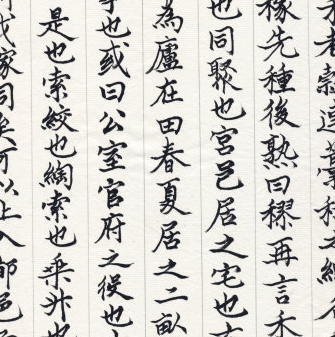 者穀連藁秸之總
稼先種後熟曰穋再言禾
也同聚也宮邑居之宅也古
為廬在田春夏居之二畝
事也或曰公室官府之役也
是也索絞也綯索也乘升也
同矣可以上入都邑